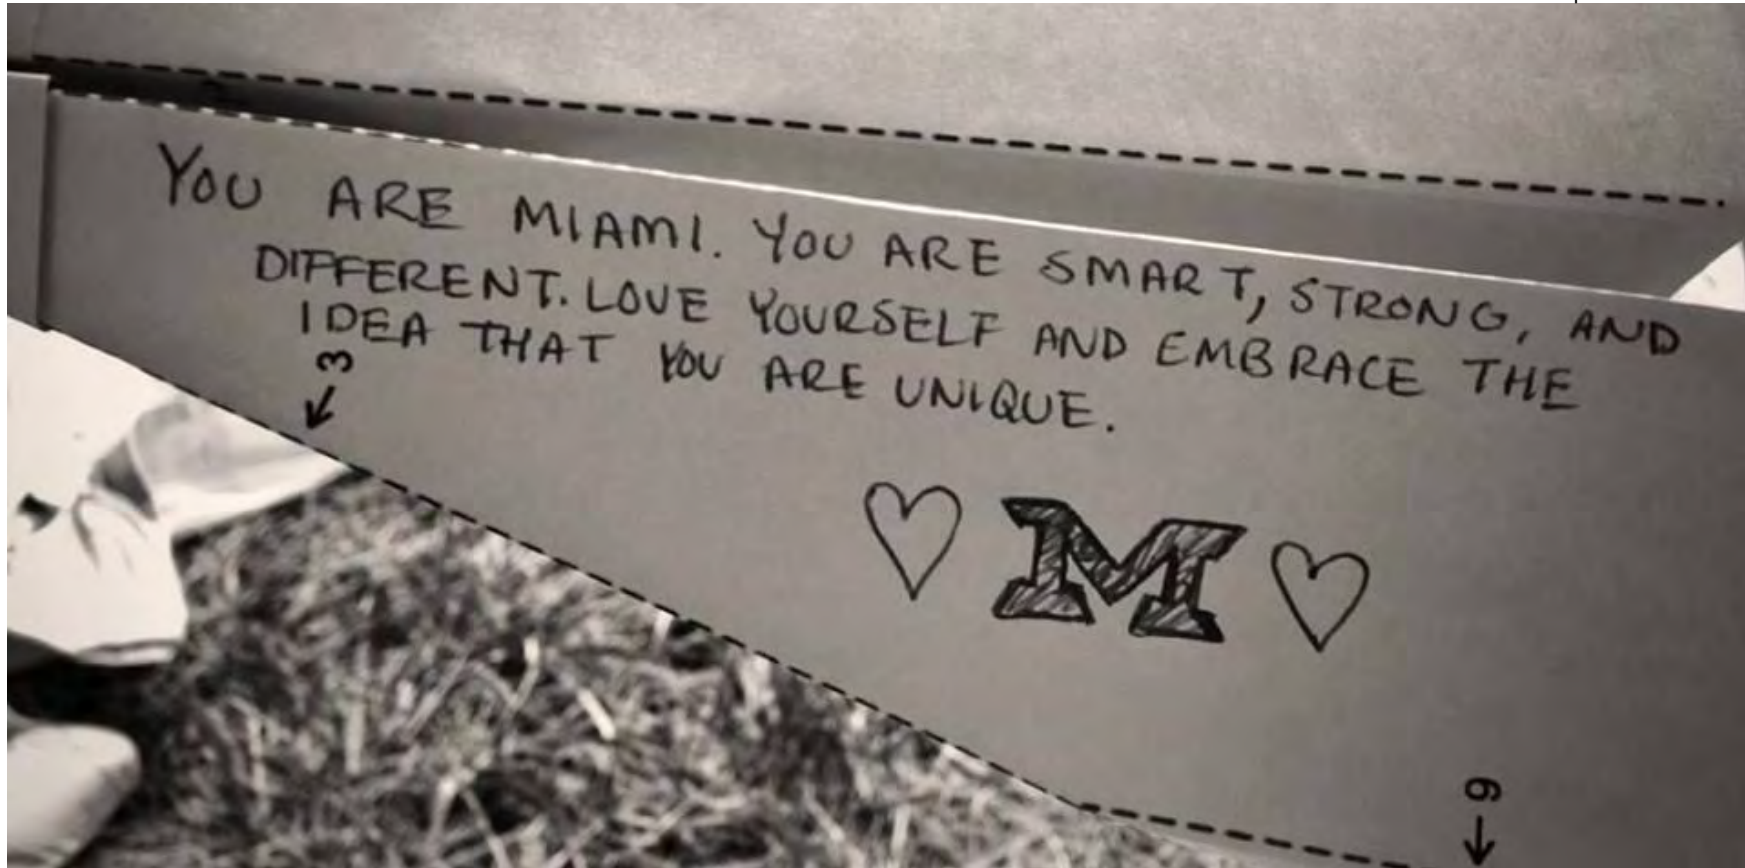 YOU ARE MIAMI. YOU ARE SMART, STRONG, AND
DIFFERENT. LOVE YOURSELF AND EMBRACE THE
IDEA THAT YOU ARE UNIQUE.
3
M
6